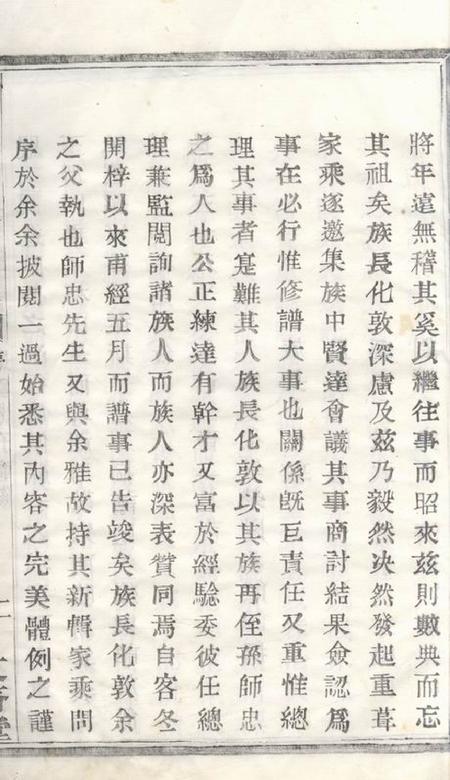 將年遠無稽其奚以繼往事而昭來茲則數典而忘
其祖矣族長化敦深慮及茲乃毅然决然發起重葺
家乘逐邀集族中賢達會議其事商討結果僉認爲
事在必行惟修譜大事也關係既巨責任又重惟總
理其事者寔難其人族長化敦以其族再侄孫師忠
之爲人也公正練達有幹才又富於經驗委彼任總
理兼監閱詢諸族人而族人亦深表贊同焉自客冬
開梓以來甫經五月而譜事已告竣矣族長化敦余
之父執也師忠先生又與余雅故持其新輯家乘問
序於余余披閱一過始悉其內容之完美體例之謹